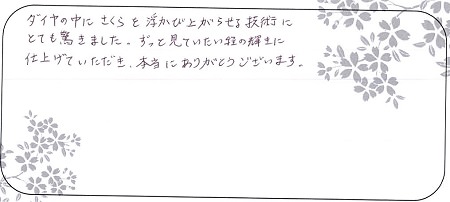 ダイヤの中に さくらを浮かび上がらせる技術に
とても驚きました。ずっと見ていたい程の輝きに
仕上げていただき、本当にありがとうございます。